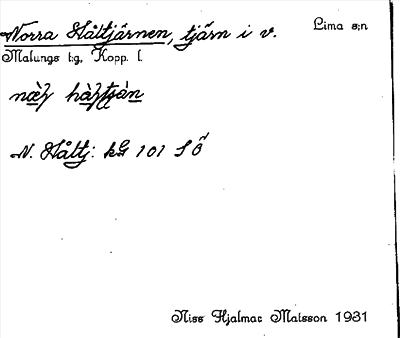 Norra Håltjärnen, tjärn i v. Lima s:n
Malungs t:g, Kopp. l.
N. Håltj: kG 101 S Ö
Niss Hjalmar Matsson 1931